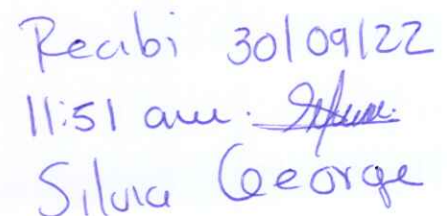 Recibi 30/09/22
11:51 am.
Silvia George